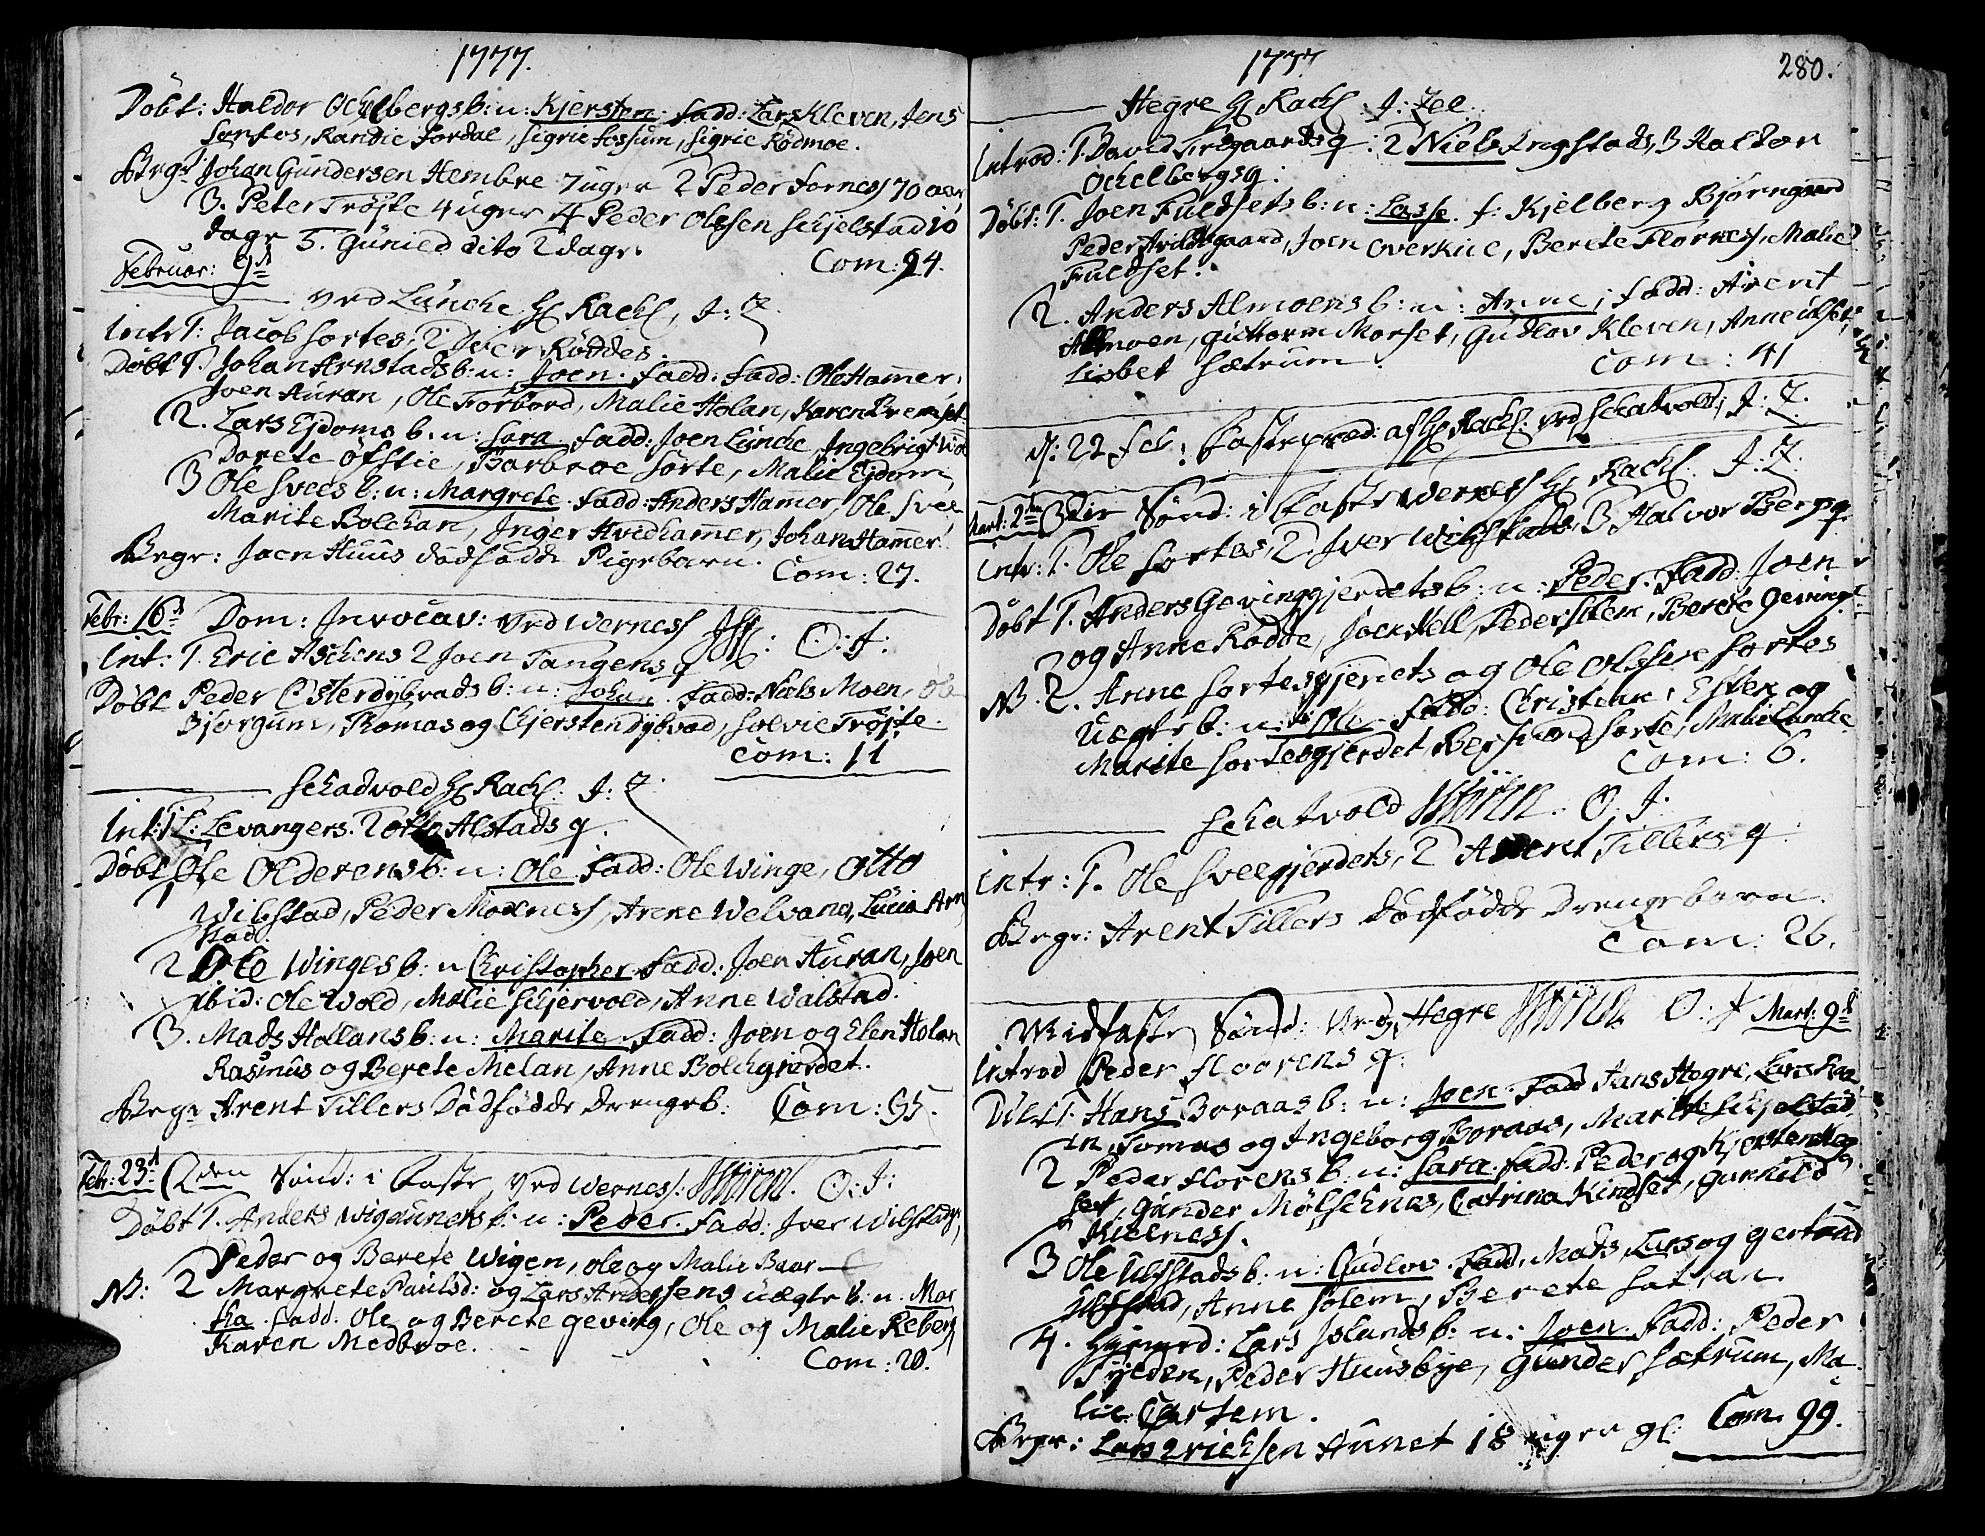 1777.
Döbt: Haldor Ochelbergs b: n: Kjersten. fadd: Lars Kleven, Jens
Sertos, Randie Fordal, Sigrie Fossum, Sigrie Rödmoe.
Begr: Johan Gundersen Hembre 7 uger 2 Peder Forness 70 aar,
3. Peter Tröjte 4 uger 4 Peder Olssen Schjelstad 10
dagr 5. Gunild dito 2 dagr.
Com: 94.
Februar: 9d
ved Lünche H Rachl, J: Z.
Intr 1. Jacob Sortes, 2 Iver Röddes.
Döbt 1. Johan Arnstads b: n: Joen. fadd. fadd: Ole Hamer,
Joen Auran, Ole Forbord, Malie Holan, Karen Bremset
2. Lars Ejdoms b: n: Sara fadd: Joen Lünche, Ingebrigt
Dorete Öfstie, Barbroe Sorte, Malie Ejdom,
3 Ole Svees b: n: Margrete. fadd: Anders Hamer, Ole Svee
Marite Bolchan, Inger Hvidhamer, Johan Hamer.
Begr: Joen Huus dödfödde Pigebarn.
Com: 27.
Febr: 16d Dom: Invocav: ved Werness O: J:
Int: 1. Eric Aschens 2 Joen Tangens q
Döbt Peder Österdybvads b: n: Johan. fadd: Niels Moen, Ole
Bjorgum, Thomas og Chjersten Dybvad, Solvie Tröjte.
Com: 11
Schadvold H Rachl: J: Z.
Int: 1 L: Levangers. 2 Otto Alstads q.
Döbt Ole Olderens b: n: Ole fadd: Ole Winge, Otto
1. Wibstad, Peder Moxness, Arene Welvang, Lucia Arn
stad.
2 Ole Winges b: n Christopher. fadd: Joen Auran, Joen
ibid: Ole Wold, Malie Schjervold, Anne Walstad.
3. Mads Hollans b: n: Marite fadd: Joen og Elen Holan
Rasmus og Berete Melan, Anne Bolchgierdet.
Begr Arent Tillers Dödfödde Drengeb: Com: 95.
Febr: 23d 2den Sönd: i Faste, ved Werness: O: J:
Döbt 1. Anders Wigdunets b: n: Peder. fadd: Iver Wibstad,
Peder og Berete Wigen, Ole og Malie Baar
NB: 2 Margrete Paulsd: og Lars Andersens uægte b: n: Mar
tha. fadd: Ole og Berete Geving, Ole og Malie Reberg,
Karen Medbroe.
Com: 20.
1777
280.
Hegre H Rachl: J: Zel.
Introd: 1. David Tresgaards q: 2 Niels Ingstads, 3 Haldor
Ochelbergs q:
Döbt: 1. Joen Fuldsets b: n: Lasse f: Kjelberg Bjorngaard
Peder Arildsgaard, Joen Overkil, Berete Flornes, Malie
Fuldset.
2. Anders Almoens b: n: Anne, fadd: Arent
Almoen, Guttorm Morset, Gudlov Kleven, Anne Ulset,
Lisbet Sætrum.
Com: 41
d: 22 Feb: Fastepræd: af H Rachl: ved Schatvold, J: Z.
Mart: 2d 3die Sönd: i Faste Werness H Rachl. J: Z.
intr: 1. Ole Sortes, 2. Iver Wibstads, 3 Halvor Bergs q.
Döbt 1. Anders Gevingsgjerdets b: n: Peder. fadd: Joen
og Anne Rödde, Joen Hell, Peder Solem, Berete Geving
NB. 2. Anne Sortesgjerdets og Ole Olssens Sortes
Uægte b: n: Ole. fadd: Christen, Esten og
Marite Sortesgjerdet, Sorte, Malie Lünche.
Com: 6.
Schatvold O. J.
intr: 1. Ole Sveegjerdets, 2 Arent Tillers q:
Begr: Arent Tillers Dödfödde Drengebarn.
Com: 26.
Midfaste Sönd: ved Hegre O: J. Mart: 9d
Introd Peder Floorens q:
Döbt 1. Hans Boraas b: n: Joen. fadd Hans Hegre, Lars
in, Tomas og Ingeborg Boraas, Marite Schjelstad
2 Peder Florens b: n: Sara. fadd: Peder og Kjersten
set, Gunder Mölschnes, Catrina Kindset, Gunnild
Kielness.
3 Ole Ulstads b: n: Gudlov. fadd, Mads, Lars og Gertrud
Ulstad, Anne Solem, Berete Satran.
4. Lars Islands b: n: Joen. fadd: Peder
Tylden, Peder Huusbye, Gunder Sætrum, Ma-
lie Cartem.
Begr: Lars Erichsen Hunet 18 uger gl: Com. 99.